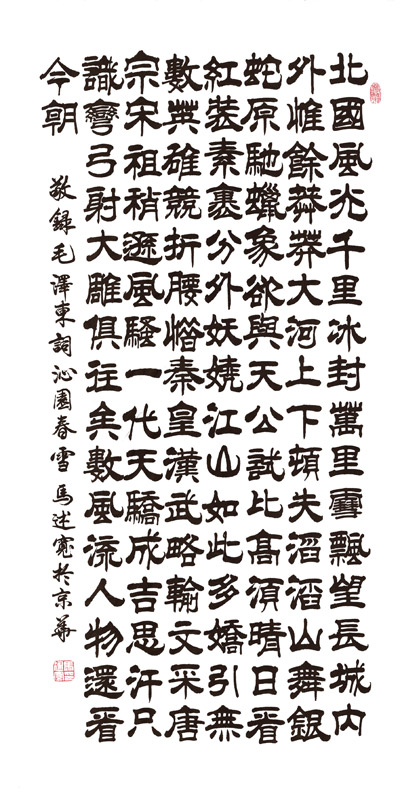 北國風光千里冰封萬里雪飄望長城內
外惟餘莽莽大河上下頓失滔滔山舞銀
蛇原馳蠟象欲與天公試比高須晴日看
紅裝素裹分外妖嬈江山如此多嬌引無
數英雄競折腰惜秦皇漢武略輸文采唐
宗宋祖稍遜風騷一代天驕成吉思汗只
識彎弓射大雕俱往矣數風流人物還看
今朝
敬錄毛澤東詞沁園春雪 馬述寬於京華